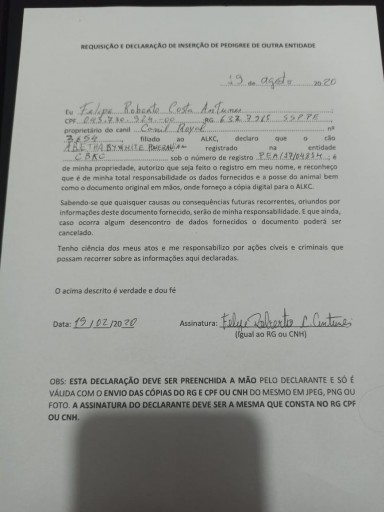 REQUISIÇÃO E DECLARAÇÃO DE INSERÇÃO DE PEDIGREE DE OUTRA ENTIDADE
19 de agosto 2020
Eu Felipe Roberto Costa Antunes
CPF 043.730.524-00 RG 6527985 SSPPE
proprietário do canil Canil Royal nº
3654 filiado ao ALKC, declaro que o cão
registrado na entidade
CBKC sob o número de registro é
de minha propriedade, autorizo que seja feito o registro em meu nome, e reconheço
que é de minha total responsabilidade os dados fornecidos e a posse do animal bem
como o documento original em mãos, onde forneço a cópia digital para o ALKC.
Sabendo-se que quaisquer causas ou consequências futuras recorrentes, oriundos por
informações deste documento fornecido, serão de minha responsabilidade. E que ainda,
caso ocorra algum desencontro de dados fornecidos o documento poderá ser
cancelado.
Tenho ciência dos meus atos e me responsabilizo por ações cíveis e criminais que
possam recorrer sobre as informações aqui declaradas.
O acima descrito é verdade e dou fé
Data: 19/02/2020 Assinatura: Felipe Roberto C. Antunes
(Igual ao RG ou CNH)
OBS: ESTA DECLARAÇÃO DEVE SER PREENCHIDA A MÃO PELO DECLARANTE E SÓ É
VÁLIDA COM O ENVIO DAS CÓPIAS DO RG E CPF OU CNH DO MESMO EM JPEG, PNG OU
FOTO. A ASSINATURA DO DECLARANTE DEVE SER A MESMA QUE CONSTA NO RG CPF
OU CNH.